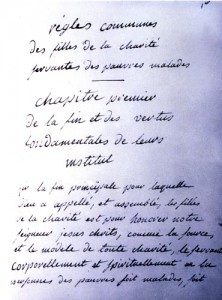 règles communes
des filles de la charité
servantes des pauvres malades
chapitre premier
de la fin et des vertus
fondamentales de leurs
institut
la fin principale pour laquelle
dieu a appellé, et assemblé, les filles
de la charité est pour honorer notre
seigneur jesus christ, comme la source
et le modele de toute charité, le servant
corporellement et spirituellement en la
personne des pauvres soit malades, soit